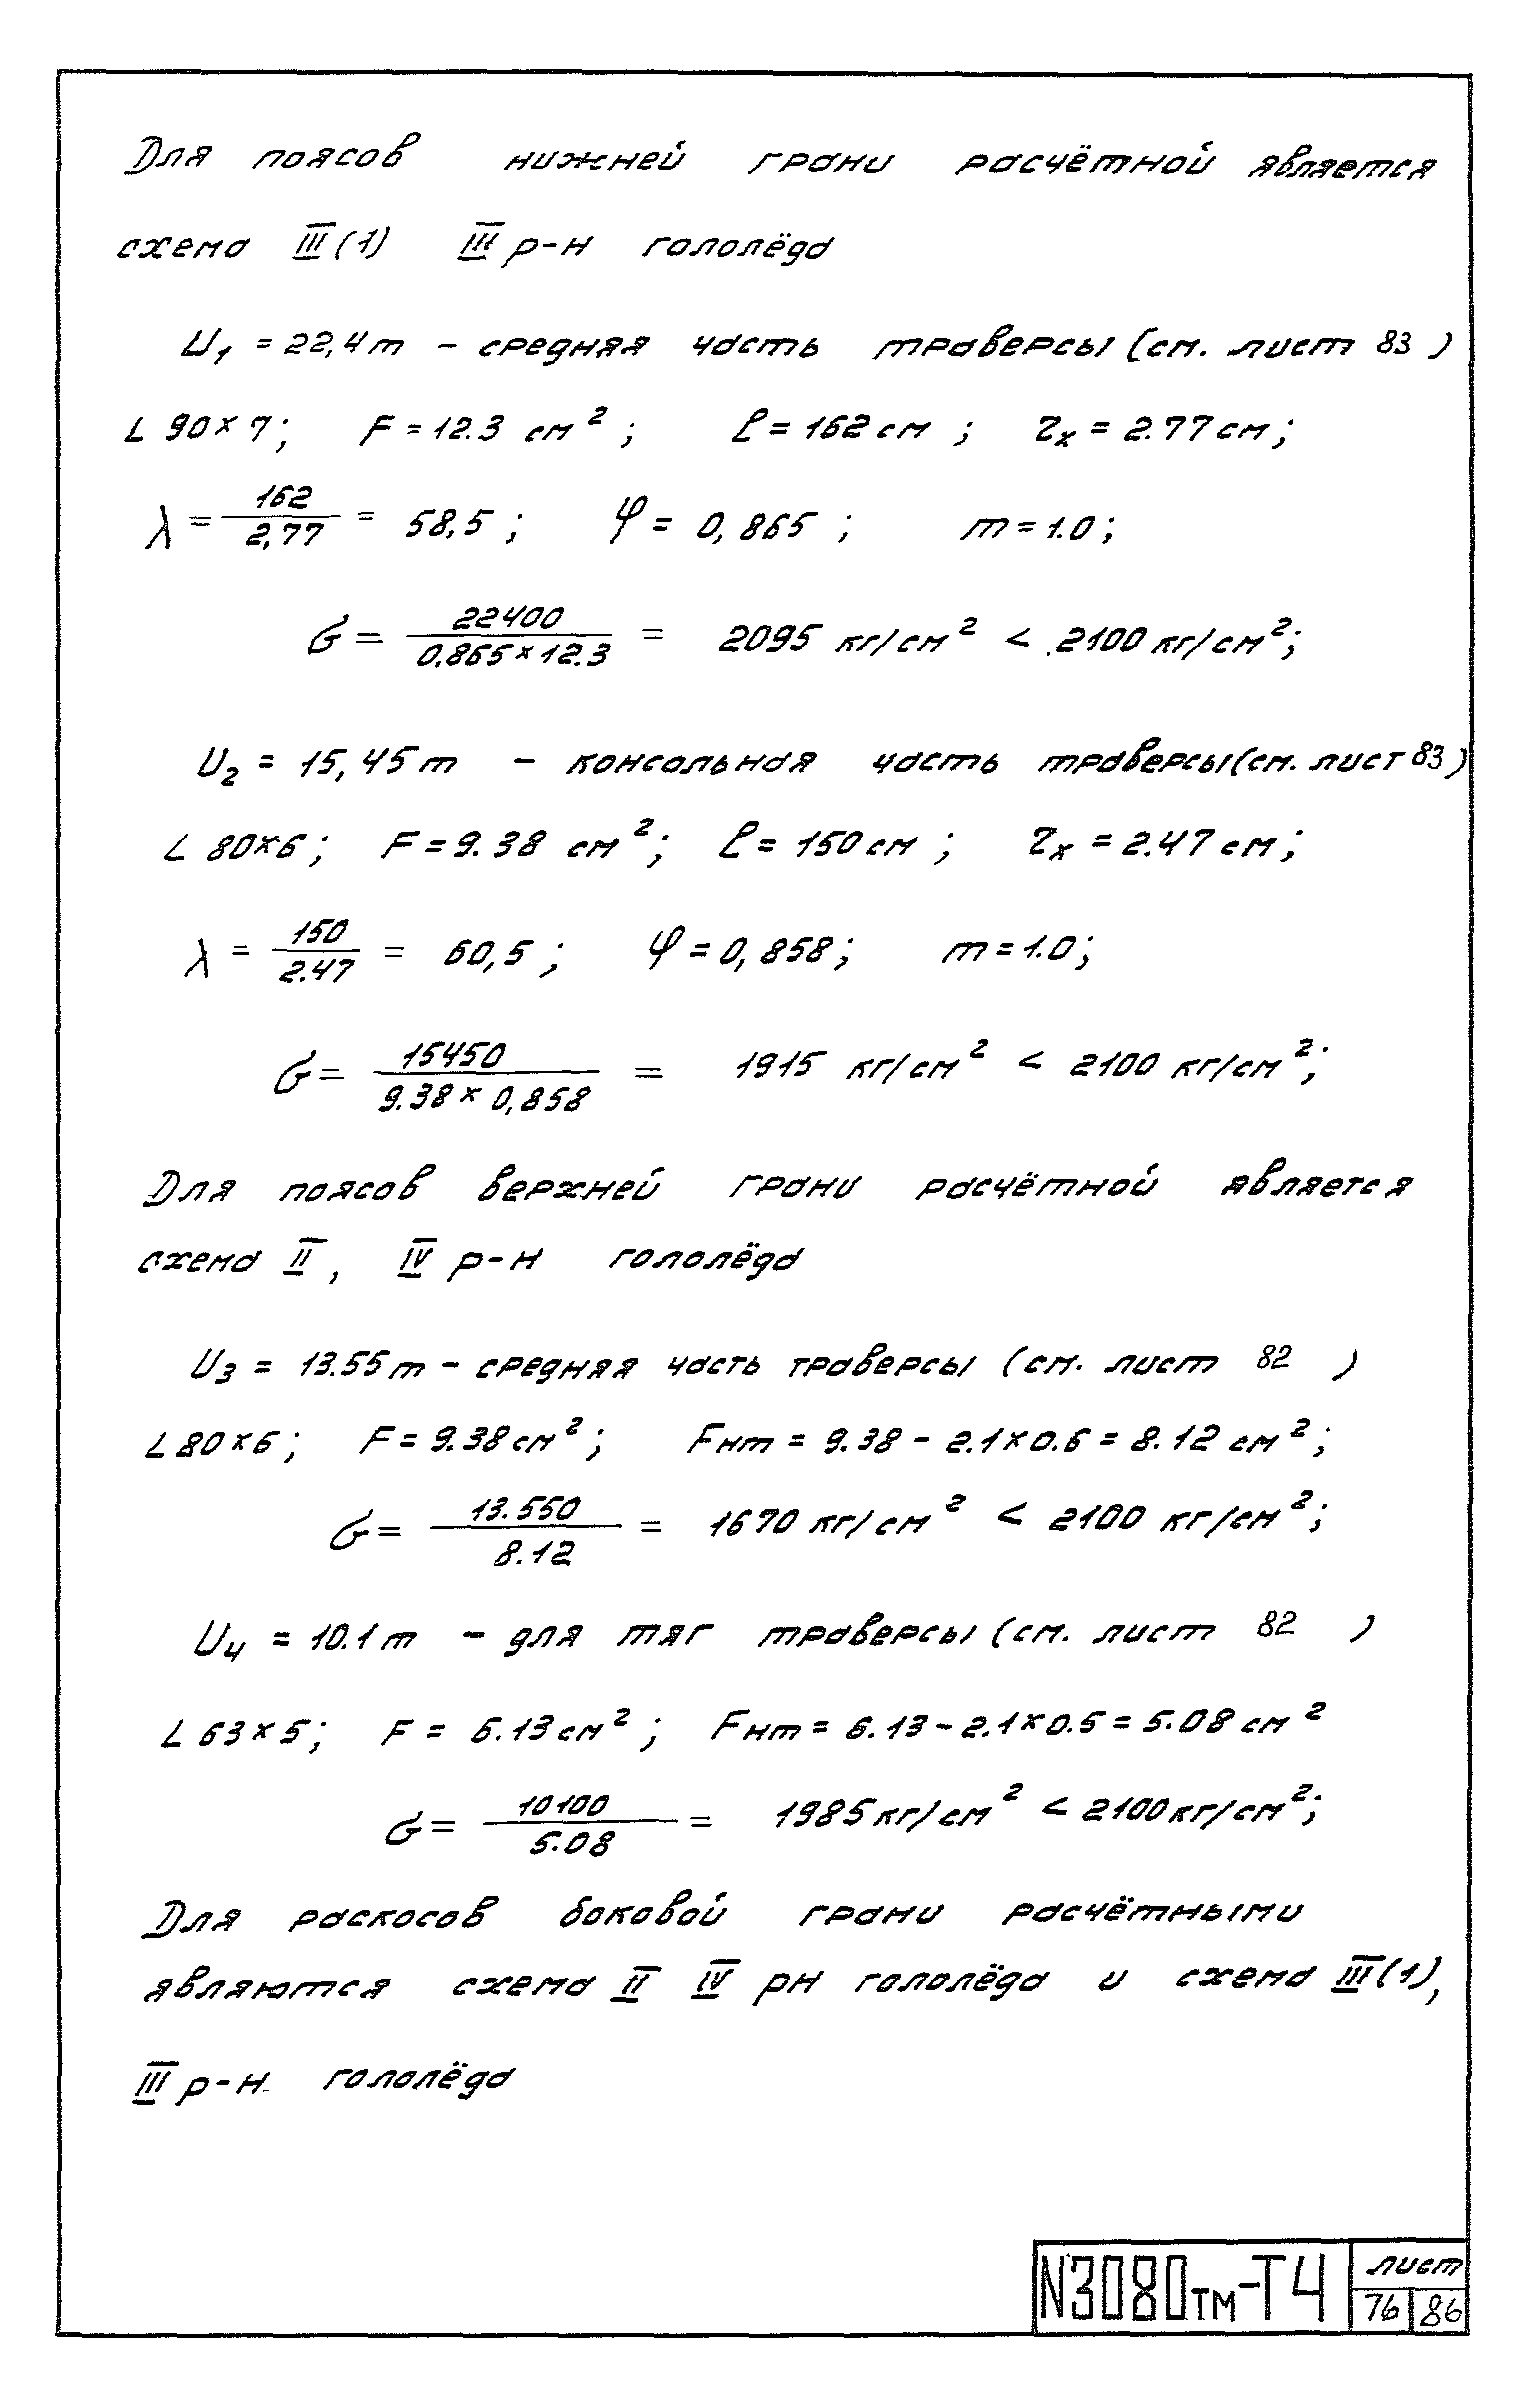 Для поясов нижней грани расчётной является
схема III(1) III р-н гололёда
U₁ = 22,4т - средняя часть траверсы (см. лист 83)
L 90×7; F = 12.3 см²; ℓ = 162 см; τₓ = 2.77 см;
λ = 162/2,77 = 58,5; φ = 0,865; m = 1.0;
σ = 22400/0.865×12.3 = 2095 кг/см² < 2100 кг/см²;
U₂ = 15,45т - консольная часть траверсы (см. лист 83)
L 80×6; F = 9.38 см²; ℓ = 150 см; τₓ = 2.47 см;
λ = 150/2.47 = 60,5; φ = 0,858; m = 1.0;
σ = 15450/9.38×0,858 = 1915 кг/см² < 2100 кг/см²;
Для поясов верхней грани расчётной является
схема II, IV р-н гололёда
U₃ = 13.55т - средняя часть траверсы (см. лист 82)
L 80×6; F = 9.38 см²; Fнт = 9.38 - 2.1×0.6 = 8.12 см²;
σ = 13.550/8.12 = 1670 кг/см² < 2100 кг/см²;
U₄ = 10.1т - для тяг траверсы (см. лист 82)
L 63×5; F = 6.13 см²; Fнт = 6.13 - 2.1×0.5 = 5.08 см²
σ = 10100/5.08 = 1985 кг/см² < 2100 кг/см²;
Для раскосов боковой грани расчётными
являются схема II IV рн гололёда и схема III(1),
III р-н. гололёда
N3080тм-Т4
лист
76 86